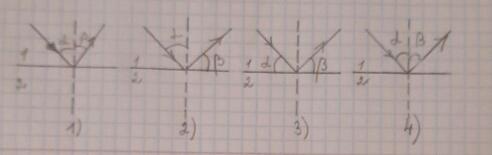 α β α α β
1 1 β 1 α β 1
2 2 2 2
1) 2) 3) 4)